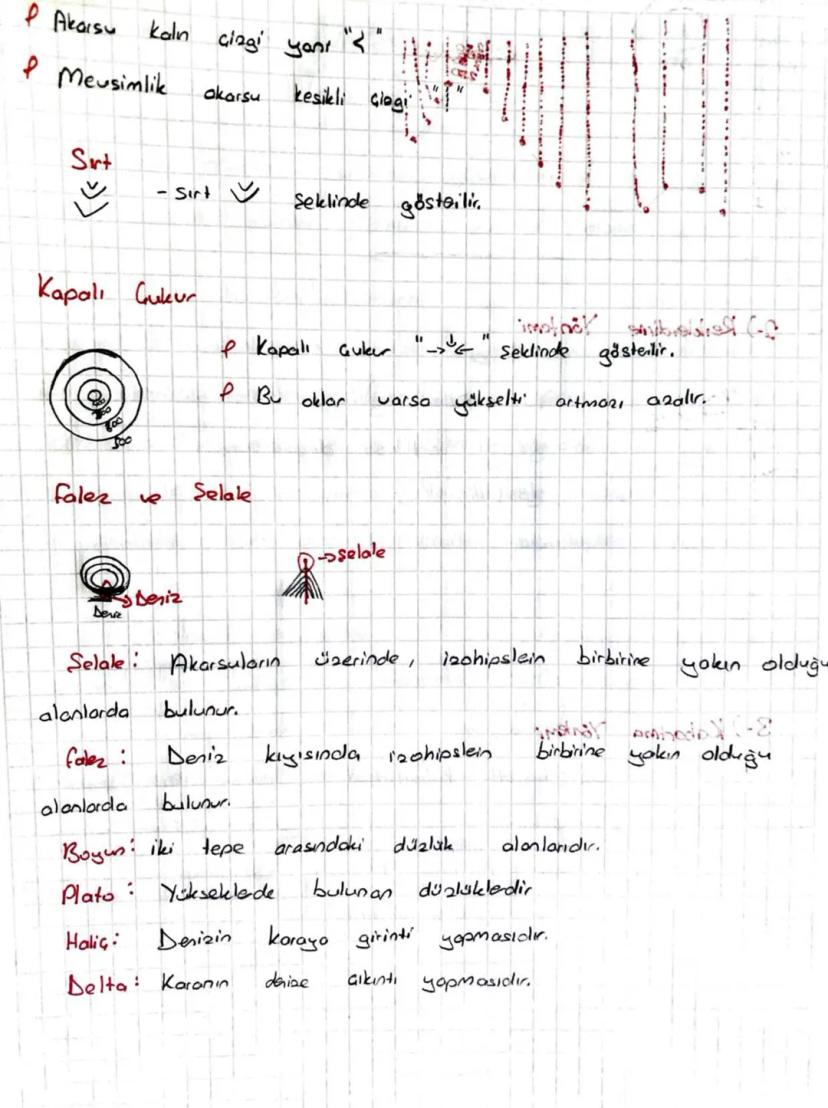 Akarsu kalın çizgi yani "<"
Mevsimlik akarsu kesikli çizgi "¦"
Sırt
- Sırt şeklinde gösterilir.
Kapalı Çukur
Kapalı Çukur "→↓←" şeklinde gösterilir.
Bu oklar varsa yükselti artmazı azalır.
600
500
Falez ve Şelale
→Şelale
→Deniz
Deniz
Şelale: Akarsuların üzerinde, izohipslein birbirine yakın olduğu
alanlarda bulunur.
Falez: Deniz kıyısında izohipslein birbirine yakın olduğu
alanlarda bulunur.
Boyun: iki tepe arasındaki düzlük alanlarıdır.
Plato: Yükseklede bulunan düzlükledir
Haliç: Denizin karaya girinti yapmasıdır.
Delta: Karanın denize çıkıntı yapmasıdır.